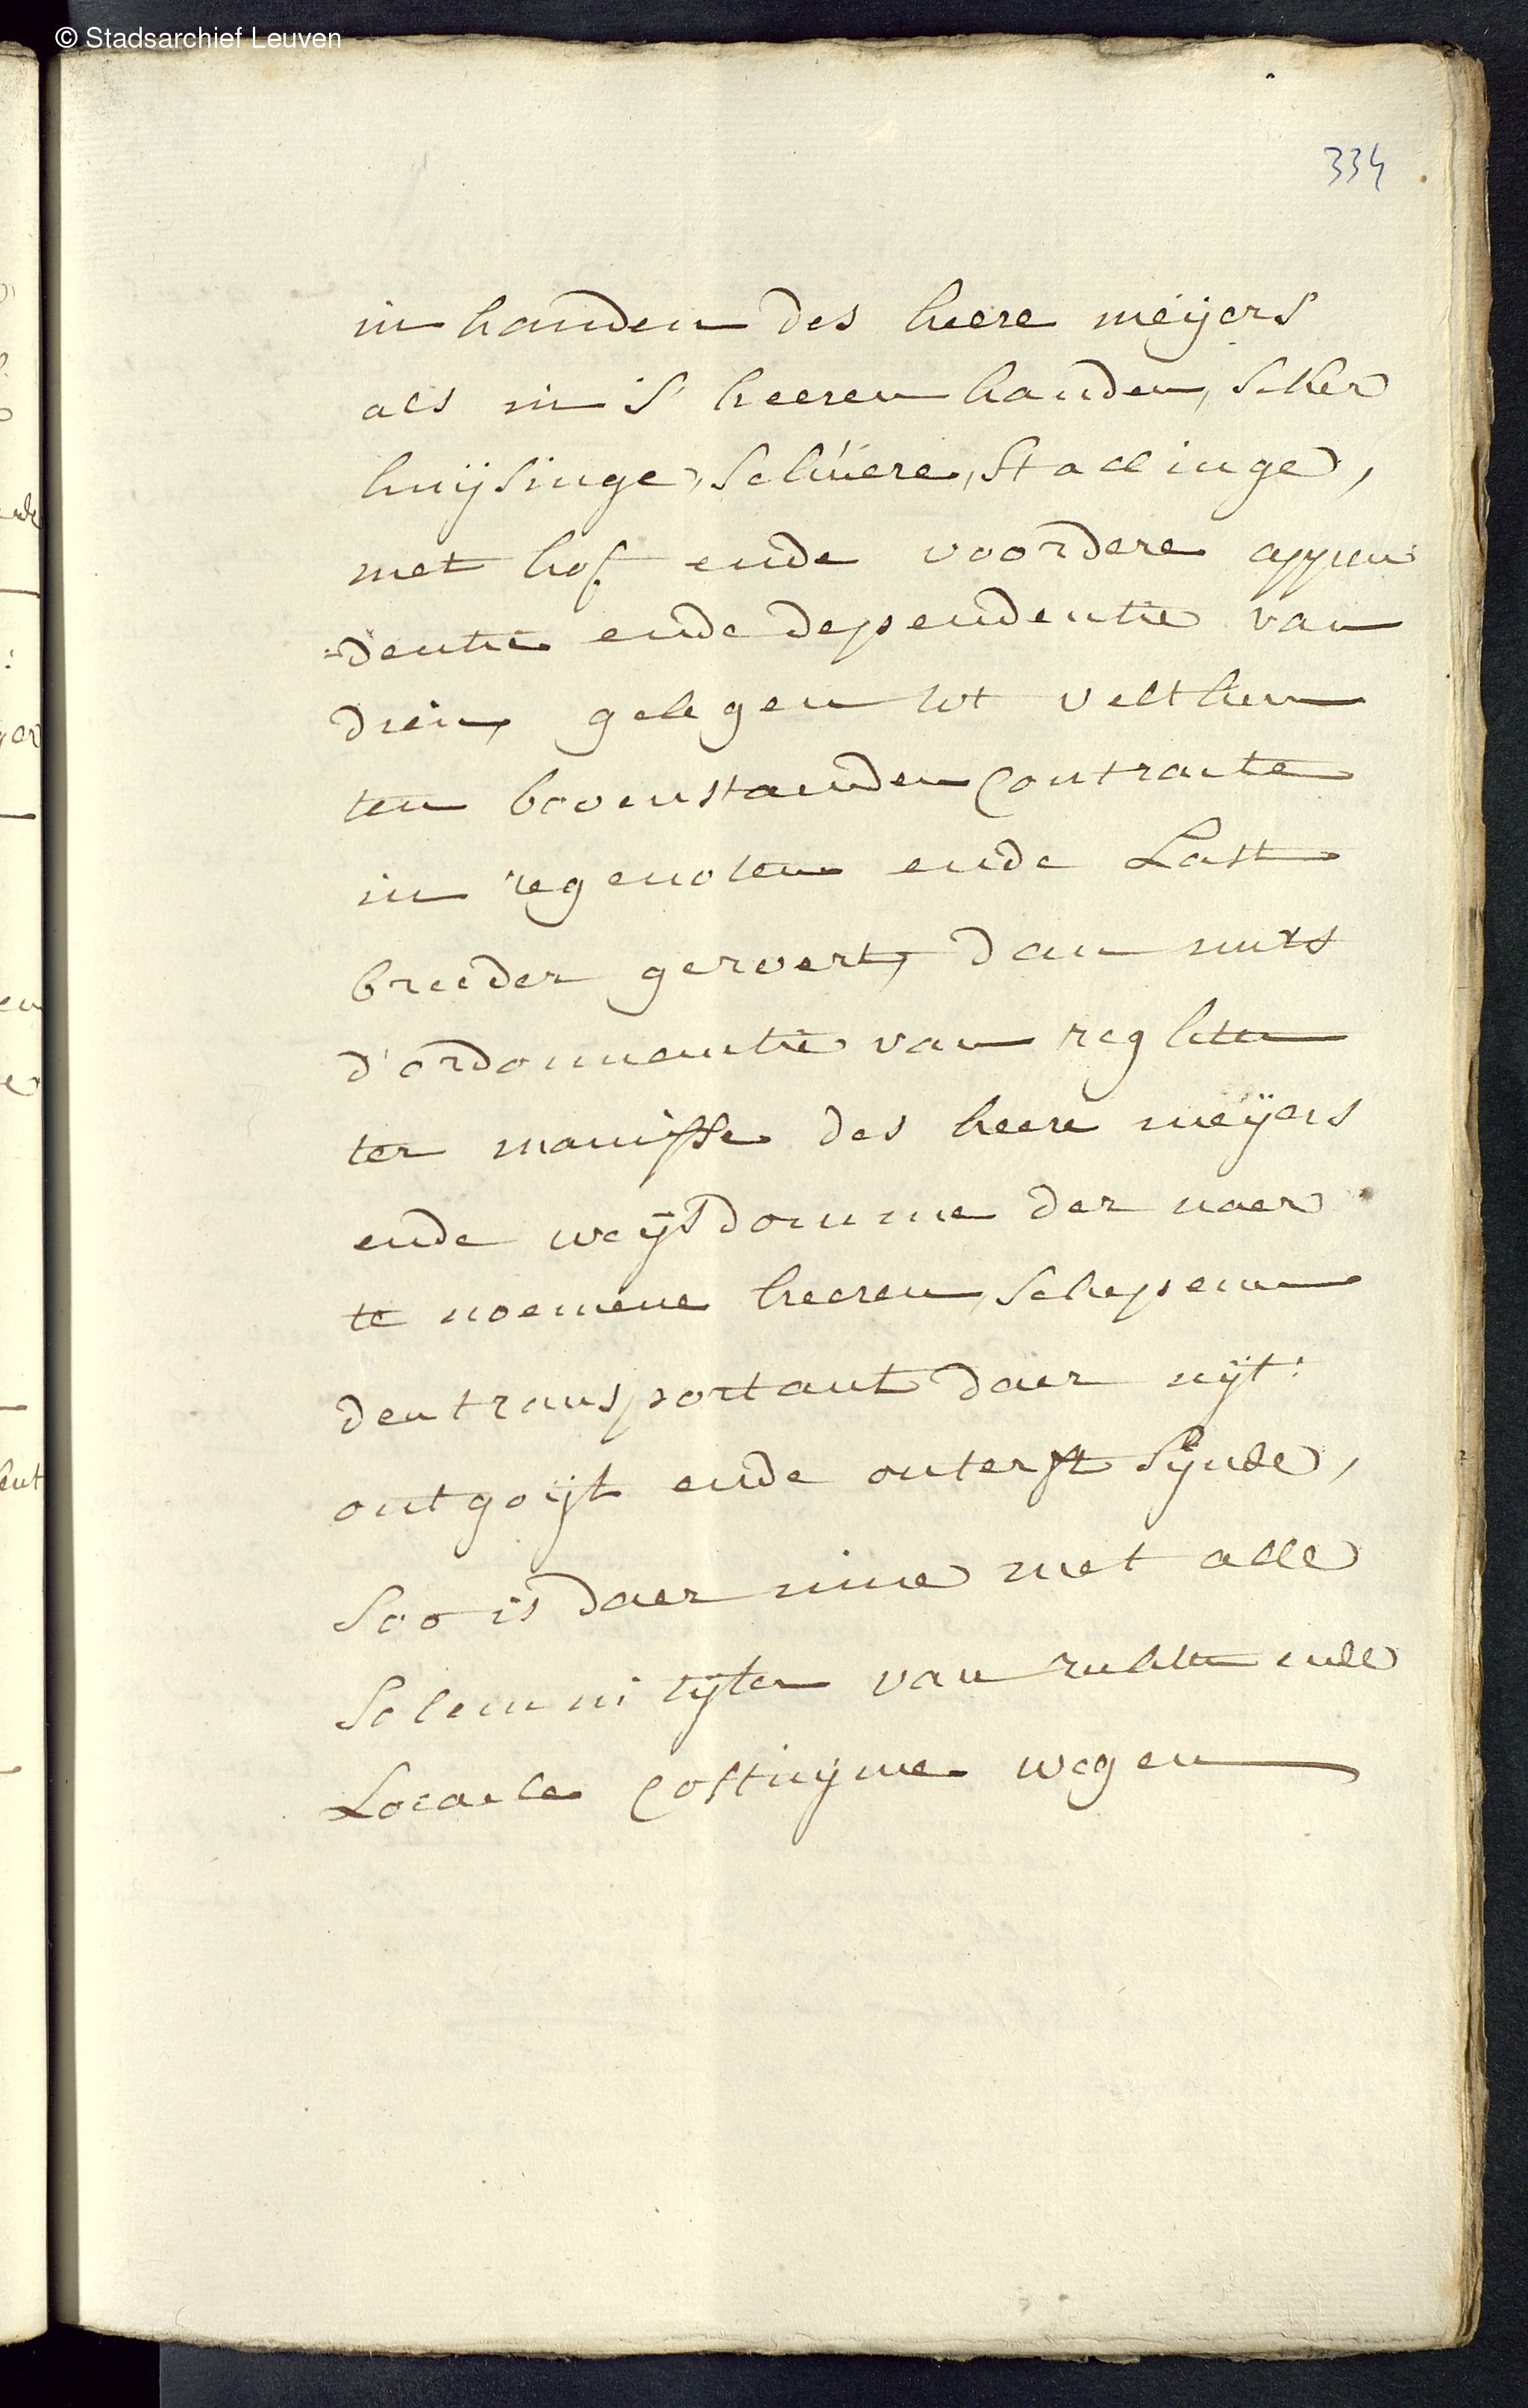 © Stadsarchief Leuven
334
in handen des heere meijers
als in S' heeren handen, seker
huijsinge, schuere, stallinge,
met hof ende voordere appen
=dentie ende dependentie van
dien, gelegen tot velthem
ten bovenstanden contracte
in regenoten ende Last
breeder gervert, dan mits
d'ordonnantie van reghten
ter manisse des heere meijers
ende weijsdomme der naer
te noemene heeren, schepenen
den transportant daer uijt:
ontgoijt ende onterft sijnde,
Soo is daer inne met alle
Solemnitijten van rechten ende
Locaele costuijme wegen